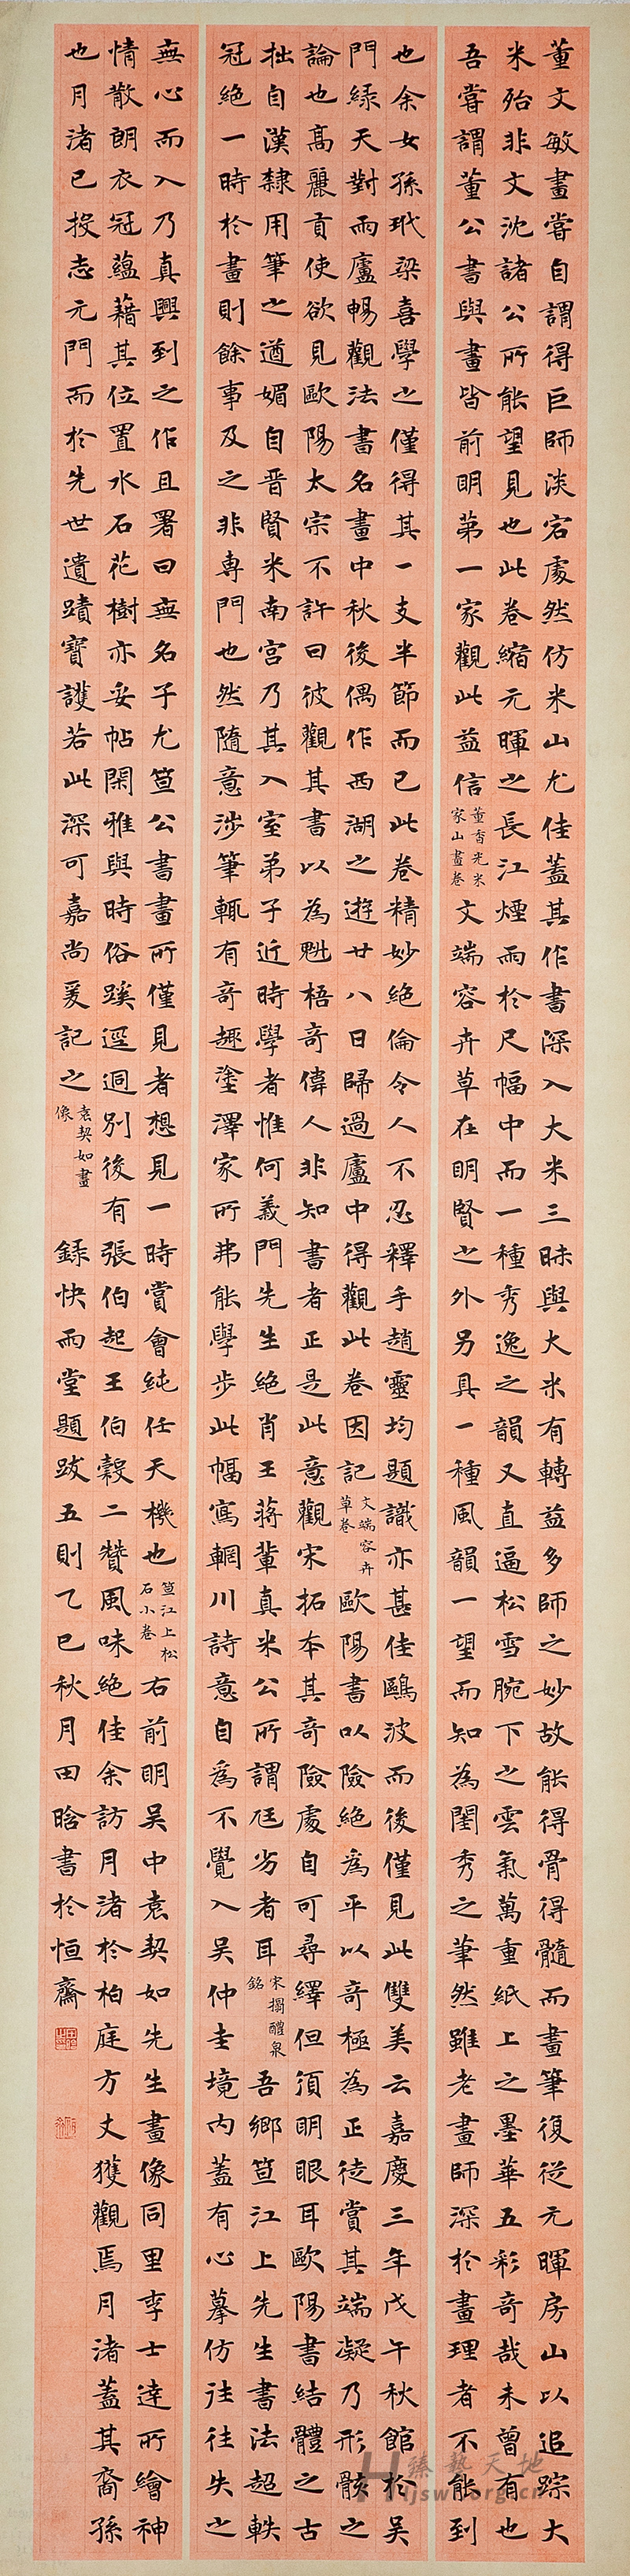 董文敏畫嘗自謂得巨師淡宕處然仿米山尤佳蓋其作書深入大米三昧與大米有轉益多師之妙故能得骨得髓而畫筆復從元暉房山以追踪大
米殆非文沈諸公所能望見也此卷縮元暉之長江煙雨於尺幅中而一種秀逸之韻又直逼松雪腕下之雲氣萬重紙上之墨華五彩奇哉未曾有也
吾嘗謂董公書與畫皆前明第一家觀此益信董香光米家山畫卷文端容卉草在明賢之外另具一種風韻一望而知為閨秀之筆然雖老畫師深於畫理者不能到
也余女孫玳梁喜學之僅得其一支半節而已此卷精妙絕倫令人不忍釋手趙靈均題識亦甚佳鷗波而後僅見此雙美云嘉慶三年戊午秋館於吳
門綠天對雨廬暢觀法書名畫中秋後偶作西湖之遊廿八日歸過廬中得觀此卷因記文端容卉草卷歐陽書以險絕為平以奇極為正徒賞其端凝乃形骸之
論也高麗貢使欲見歐陽太宗不許曰彼觀其書以為魁梧奇偉人非知書者正是此意觀宋拓本其奇險處自可尋繹但須明眼耳歐陽書結體之古
拙自漢隸用筆之遒媚自晉賢米南宮乃其入室弟子近時學者惟何義門先生絕肖王蔣輩真米公所謂尫劣者耳宋搨醴泉銘吾鄉笪江上先生書法超軼
冠絕一時於畫則餘事及之非專門也然隨意涉筆輒有奇趣塗澤家所弗能學步此幅寫輞川詩意自為不覺入吳仲圭境內蓋有心摹仿往往失之
無心而入乃真興到之作且署曰無名子尤笪公書畫所僅見者想見一時賞會純任天機也笪江上松石小卷右前明吳中袁契如先生畫像同里李士達所繪神
情散朗衣冠蘊藉其位置水石花樹亦妥帖閑雅與時俗蹊逕迥別後有張伯起王伯穀二贊風味絕佳余訪月渚於柏庭方丈獲觀焉月渚蓋其裔孫
也月渚已投志元門而於先世遺蹟寶護若此深可嘉尚爰記之袁契如畫像 錄快雨堂題跋五則乙巳秋月田晗書於恒齋
臻藝天地